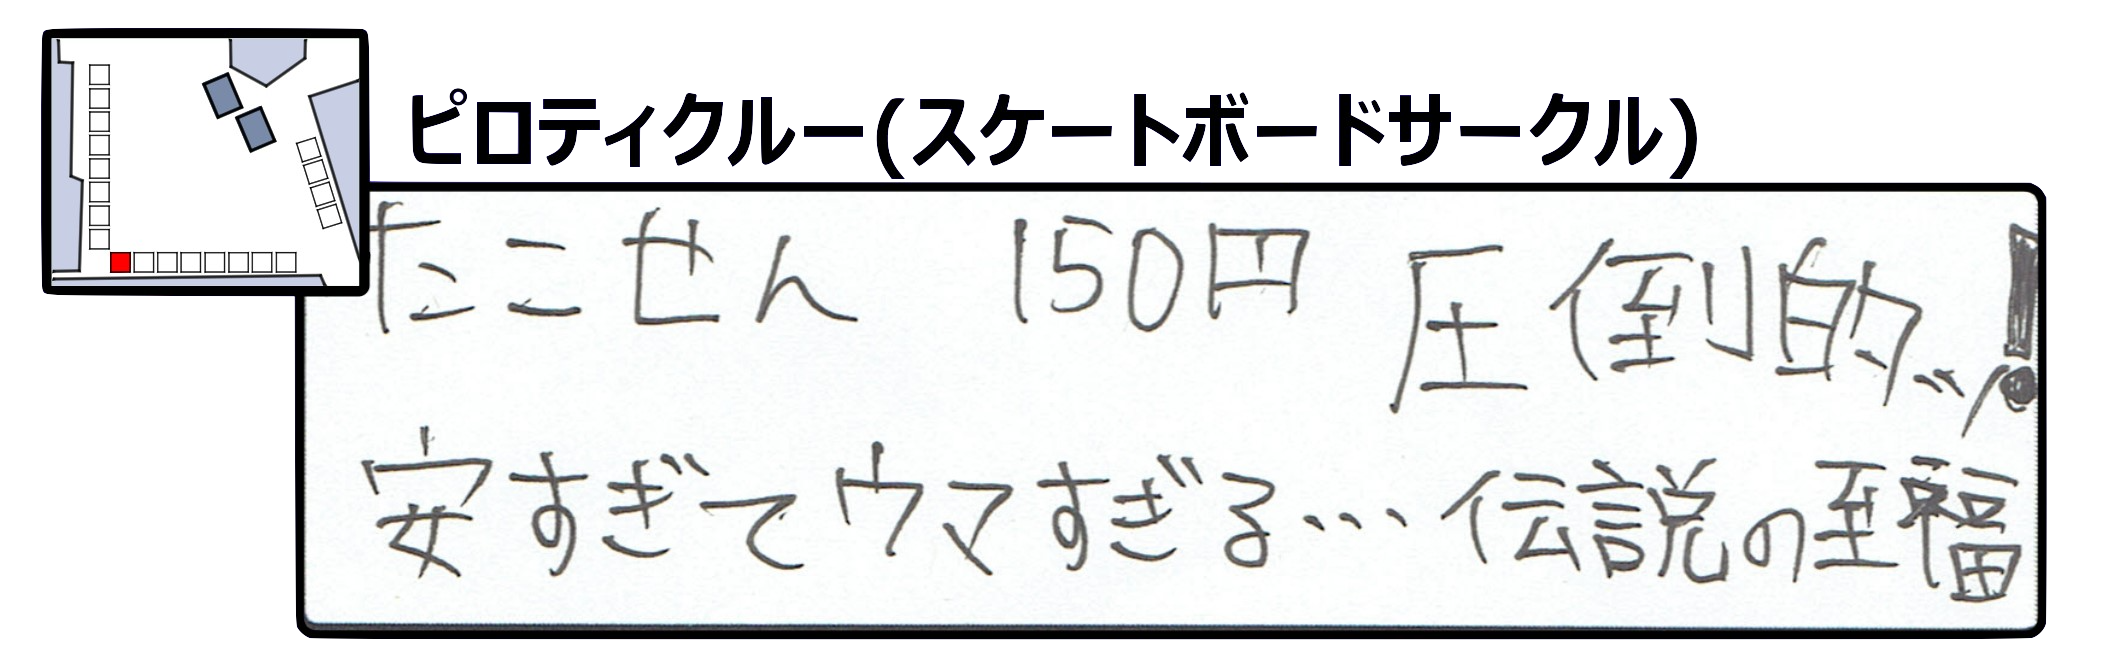 ピロティクルー(スケートボードサークル)
たこせん 150円 圧倒的ッ!
安すぎてウマすぎる…伝説の至福